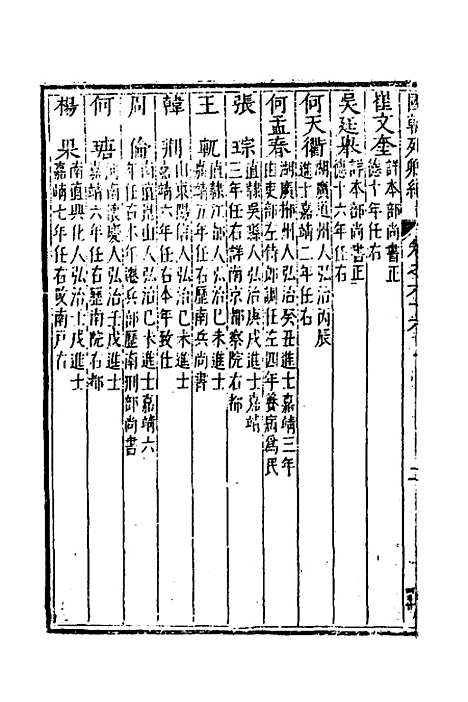 國朝列卿紀
崔文奎詳本部尚書正
德十年任右
吳廷舉詳本部尚書正
德十六年任右
何天衢湖廣道州人弘治丙辰
進士嘉靖二年任右
何孟春湖廣郴州人弘治癸丑進士嘉靖三年
由吏部左侍郎調任左四年養病為民
張琮直隸吳縣人弘治庚戌進士嘉靖
三年任右詳南京都察院右都
王軏直隸江都人弘治己未進士
嘉靖五年任右歷南兵尚書
韓荊山東陽信人弘治己未進士
嘉靖六年任右本年致仕
周倫直隸崑山人弘治己未進士嘉靖六
年任右本年遷兵部歷南刑部尚書
何瑭河南懷慶人弘治壬戌進士
嘉靖六年任右歷南院右都
楊果南直興化人弘治壬戌進士
嘉靖七年任右改南戶右